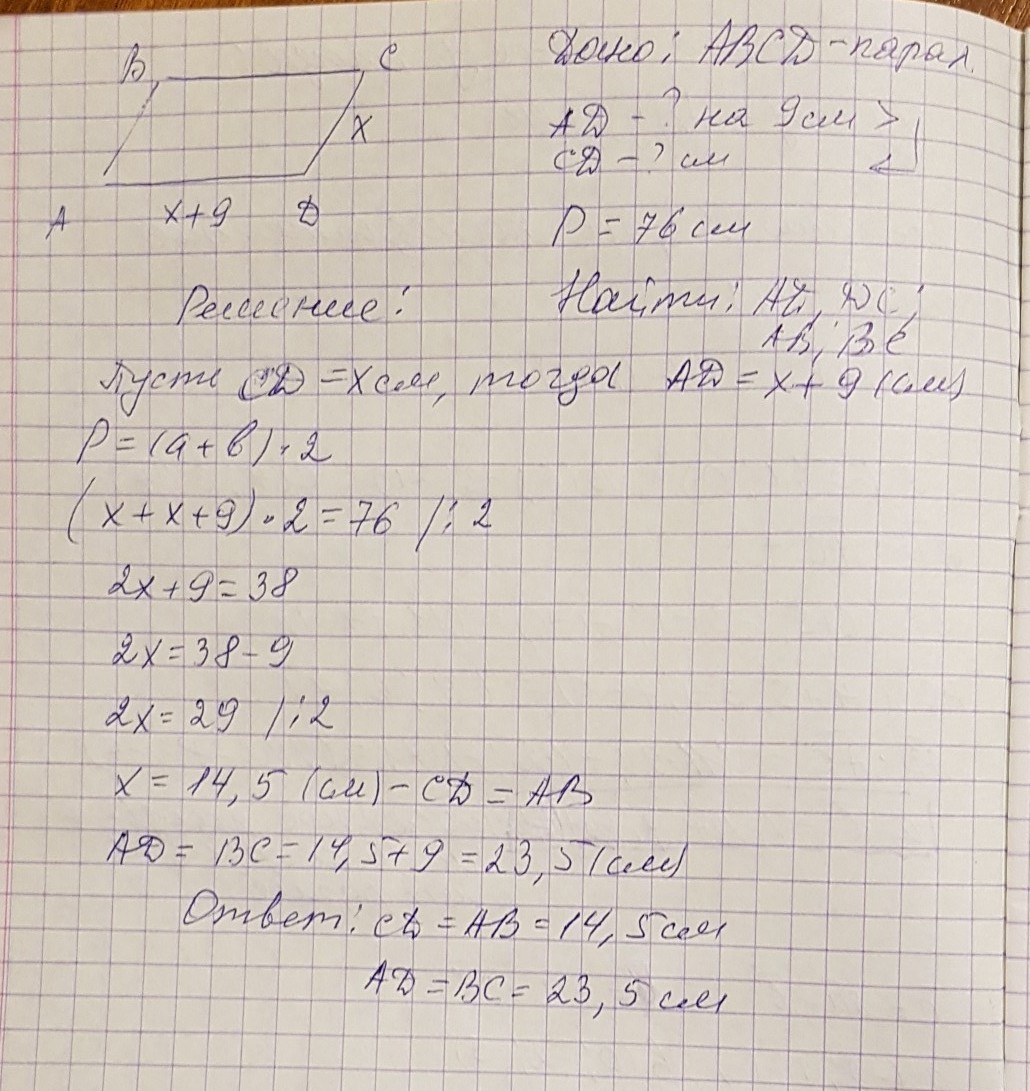 B C
x
A x+9 D
Дано: ABCD-парал.
AD - ? на 9см >
CD - ? см <
P = 76 см
Найти: AD, DC,
AB, BC
Решение:
Пусть CD = x см, тогда AD = x + 9 (см)
P = (a + b) · 2
(x + x + 9) · 2 = 76 /: 2
2x + 9 = 38
2x = 38 - 9
2x = 29 /: 2
x = 14,5 (см) - CD = AB
AD = BC = 14,5 + 9 = 23,5 (см)
Ответ: CD = AB = 14,5 см
AD = BC = 23,5 см